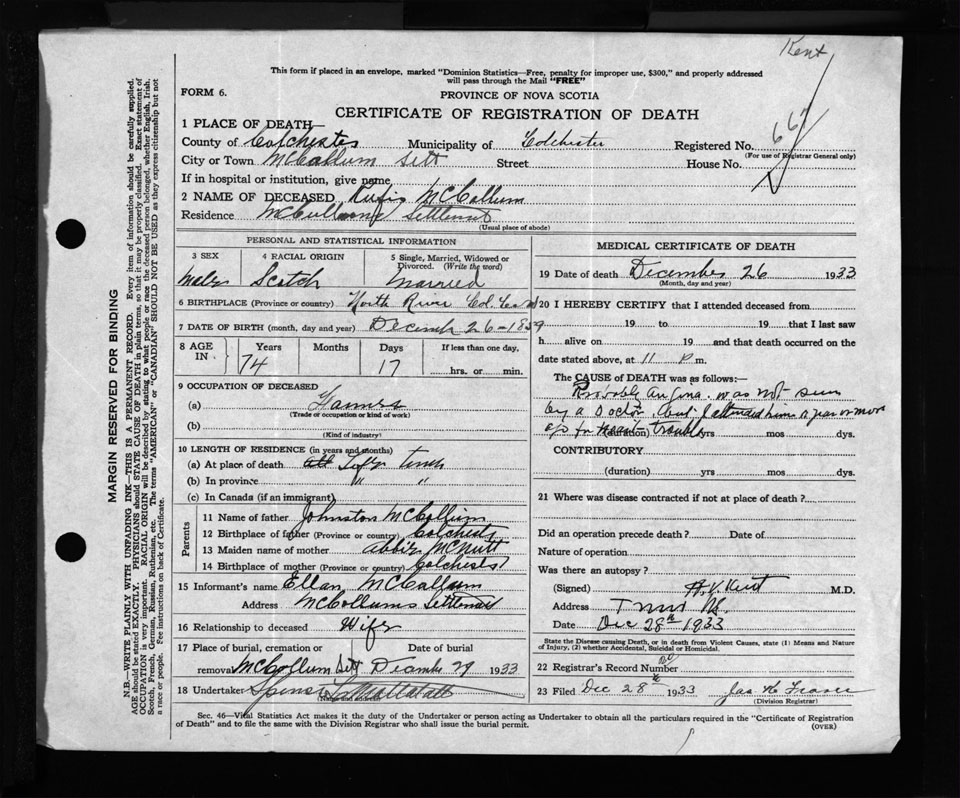 Kent
This form if placed in an envelope, marked "Dominion Statistics—Free, penalty for improper use, $300," and properly addressed
will pass through the Mail "FREE"
FORM 6.
PROVINCE OF NOVA SCOTIA
CERTIFICATE OF REGISTRATION OF DEATH
667
1 PLACE OF DEATH—
County of Colchester Municipality of Colchester Registered No.
(For use of Registrar General only)
City or Town McCallum Sett Street House No.
If in hospital or institution, give name
2 NAME OF DECEASED Rufis McCallum
Residence McCullums Settlement
(Usual place of abode)
PERSONAL AND STATISTICAL INFORMATION
3 SEX 4 RACIAL ORIGIN 5 Single, Married, Widowed or
Divorced. (Write the word)
Male Scotch Married
6 BIRTHPLACE (Province or country) North River Col. Co
7 DATE OF BIRTH (month, day and year) December 26-1859
8 AGE IN Years Months Days If less than one day,
74 17 hrs. or min.
9 OCCUPATION OF DECEASED
(a) Farmer
(Trade of occupation or kind of work)
(b)
(Kind of industry)
10 LENGTH OF RESIDENCE (in years and months)
(a) At place of death Life time
(b) In province " "
(c) In Canada (if an immigrant)
Parents
11 Name of father Johnston McCollum
12 Birthplace of father (Province or country) Colchester
13 Maiden name of mother Abbie McNutt
14 Birthplace of mother (Province or country) Colchester
15 Informant's name Ellan McCallum
Address McCollums Settlement
16 Relationship to deceased Wife
17 Place of burial, cremation or Date of burial
removal McCollum Sett December 29 1933
18 Undertaker Spencer
Name and address
MEDICAL CERTIFICATE OF DEATH
19 Date of death December 26 1933
(Month, day and year)
20 I HEREBY CERTIFY that I attended deceased from
19 to 19 that I last saw
h alive on 19 and that death occurred on the
date stated above, at 11 P m.
The CAUSE OF DEATH was as follows:—
Probably Angina. was not seen
by a Doctor, but I attended him a year or more
ago for heart trouble
(duration) yrs mos dys.
CONTRIBUTORY
(duration) yrs mos dys.
21 Where was disease contracted if not at place of death?
Did an operation precede death? Date of
Nature of operation
Was there an autopsy?
(Signed) H.V. Kent M.D.
Address Truro NS.
Date Dec 28th 1933
State the Disease causing Death, or in death from Violent Causes, state (1) Means and Nature
of Injury, (2) whether Accidental, Suicidal or Homicidal.
22 Registrar's Record Number
23 Filed Dec 28th 1933 Jas H Fraser
(Division Registrar)
Sec. 46—Vital Statistics Act makes it the duty of the Undertaker or person acting as Undertaker to obtain all the particulars required in the "Certificate of Registration
of Death" and to file the same with the Division Registrar who shall issue the burial permit.
(OVER)
MARGIN RESERVED FOR BINDING
N.B.—WRITE PLAINLY WITH UNFADING INK—THIS IS A PERMANENT RECORD. Every item of information should be carefully supplied.
AGE should be stated EXACTLY. PHYSICIANS should STATE CAUSE OF DEATH in plain terms, so that it may be properly classified. Exact statement of
OCCUPATION is very important. RACIAL ORIGIN will be described by stating to what people or race the deceased person belonged, whether English, Irish,
Scotch, French, German, Russian, Ruthenian, etc. The terms "AMERICAN" or "CANADIAN" SHOULD NOT BE USED as they express citizenship but not
a race or people. Fee instructions on back of Certificate.